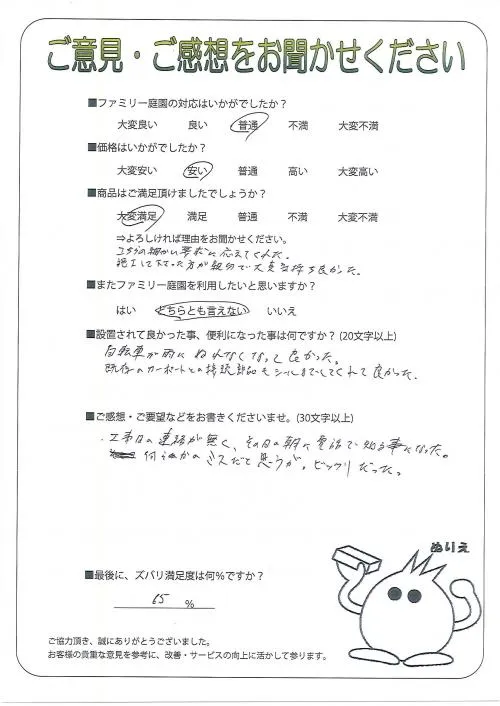 ご意見・ご感想をお聞かせください
■ファミリー庭園の対応はいかがでしたか？
大変良い 良い 普通 不満 大変不満
■価格はいかがでしたか？
大変安い 安い 普通 高い 大変高い
■商品はご満足頂けましたでしょうか？
大変満足 満足 普通 不満 大変不満
⇒よろしければ理由をお聞かせください。
こちらの細かい要求に応えてくれた。
施工して下さった方が親切で大変気持ち良かった。
■またファミリー庭園を利用したいと思いますか？
はい どちらとも言えない いいえ
■設置されて良かった事、便利になった事は何ですか？(20文字以上)
自転車が雨にぬれなくなって良かった。
既存のカーポートとの接続部品もシールまでしてくれて良かった.
■ご感想・ご要望などをお書きくださいませ。(30文字以上)
・工事日の連絡が無く、その日の朝に電話で知る事になった。
何らかのミスだと思うが、ビックリだった。
ぬりえ
■最後に、ズバリ満足度は何％ですか？
65 ％
ご協力頂き、誠にありがとうございました。
お客様の貴重な意見を参考に、改善・サービスの向上に活かして参ります。